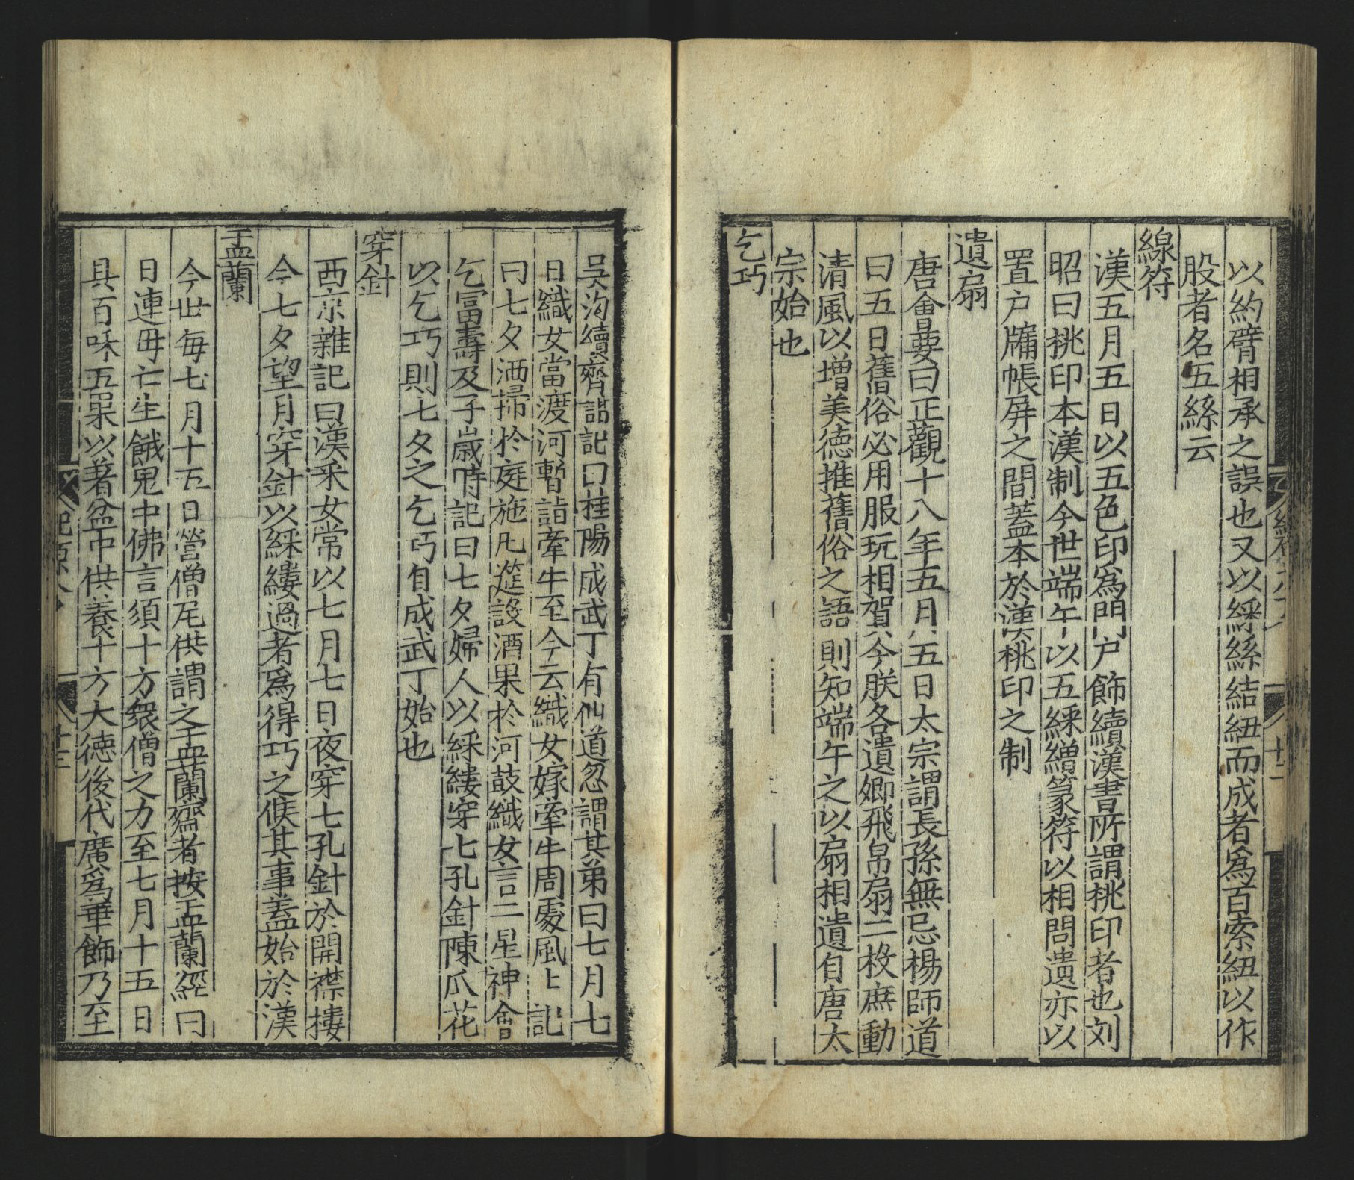 以約臂相承之誤也又以綵絲結紐而成者爲百索紐以作
股者名五絲云
線符
漢五月五日以五色印爲門戶飾續漢書所謂桃印者也刘
昭曰桃印本漢制今世端午以五綵繒篆符以相問遺亦以
置户牖帳屏之間蓋本於漢桃印之制
遺扇
唐會要曰正觀十八年五月五日太宗謂長孫無忌楊師道
曰五日舊俗必用服玩相賀今朕各遺卿飛帛扇二枚庶動
清風以增美德推舊俗之語則知端午之以扇相遺自唐太
宗始也
乞巧
吳均續齊諧記曰桂陽成武丁有仙道忽謂其弟曰七月七
日織女當渡河暫詣牽牛至今云織女嫁牽牛周處風土記
曰七夕洒掃於庭施几筵設酒果於河鼓織女言二星神會
乞富壽及子歲時記曰七夕婦人以綵縷穿七孔針陳瓜花
以乞巧則七夕之乞巧自成武丁始也
穿針
西京雜記曰漢采女常以七月七日夜穿七孔針於開襟樓
今七夕望月穿針以綵縷過者爲得巧之候其事蓋始於漢
盂蘭
今世每七月十五日營僧尼供謂之盂蘭齋者按盂蘭經曰
目連母亡生餓鬼中佛言須十方衆僧之力至七月十五日
具百味五果以著盆中供養十方大德後代廣爲華飾乃至